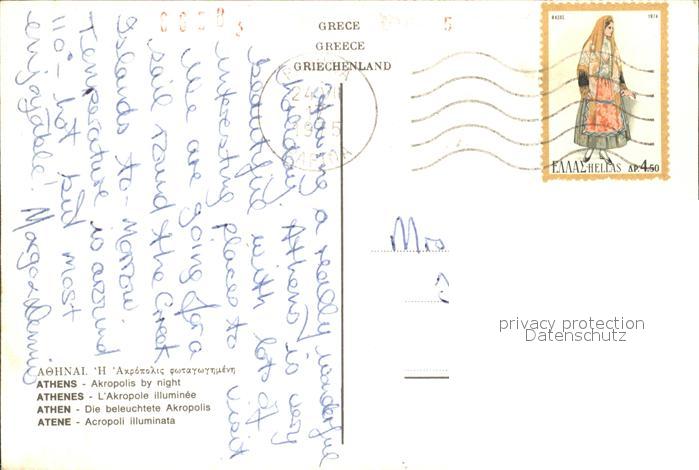 GRECE
GREECE
GRIECHENLAND
5
1974
ΕΛΛΑΣ-HELLAS ΔΡ. 4.50
Having a really wonderful
holiday. Athens is very
beautiful with lots of
interesting places to visit
We are going for a
sail round the Greek
Islands to-morrow
Temperature is around
110° - hot but most
enjoyable! Margo & Dennis
Mrs
privacy protection
Datenschutz
ΑΘΗΝΑΙ. Ἡ Ἀκρόπολις φωταγωγημένη
ATHENS - Akropolis by night
ATHENES - L'Akropole illuminée
ATHEN - Die beleuchtete Akropolis
ATENE - Acropoli illuminata